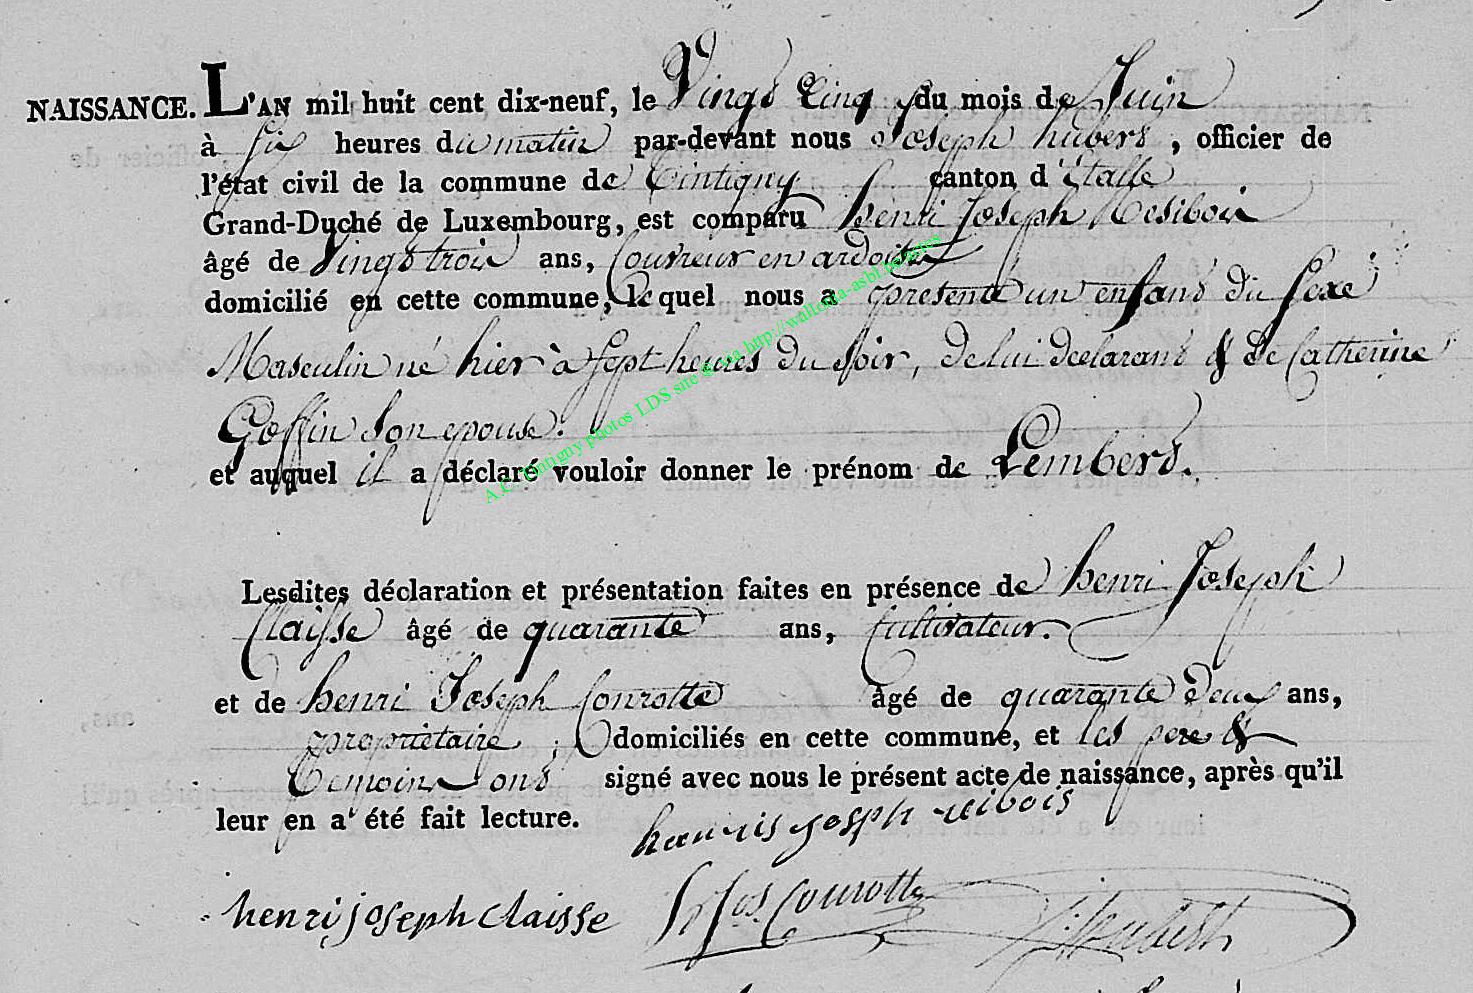 NAISSANCE. L'AN mil huit cent dix-neuf, le Vingt Cinq du mois de Juin
à six heures du matin par-devant nous Joseph hubert, officier de
l'état civil de la commune de Tintigny canton d'étalle
Grand-Duché de Luxembourg, est comparu henri Joseph
âgé de Vingt trois ans, Couvreur en ardoises
domicilié en cette commune, lequel nous a présenté un enfant du sexe
Masculin né hier à sept heures du soir, de lui déclarant & de Catherine
Goffin son epouse.
et auquel il a déclaré vouloir donner le prénom de Lembert.
Lesdites déclaration et présentation faites en présence de henri Joseph
Claisse âgé de quarante ans, Cultivateur.
et de henri Joseph Conrotte âgé de quarante deux ans,
propriétaire, domiciliés en cette commune, et les pere &
Temoins ont signé avec nous le présent acte de naissance, après qu'il
leur en a été fait lecture.
joseph
henri joseph claisse
H Jos. Conrotte
J: hubert
A.C. Tintigny photos LDS site via http://wallonia-asbl.be